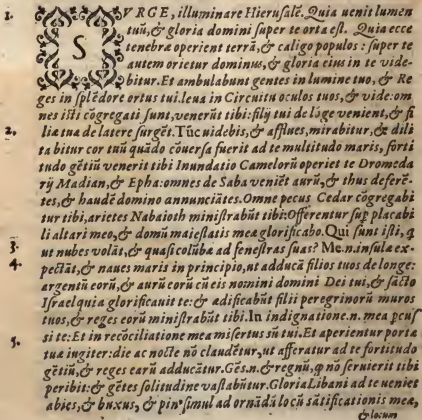 1. SVRGE, illuminare Hierusalē. Quia uenit lumen
tuū, & gloria domini super te orta est. Quia ecce
tenebræ operient terrā, & caligo populos: super te
autem orietur dominus, & gloria eius in te vide-
bitur. Et ambulabunt gentes in lumine tuo, & Re
ges in splēdore ortus tui. leua in Circuitu oculos tuos, & vide: om
nes isti cōgregati sunt, venerūt tibi: filÿ tui de lōge venient, & fi
2. lia tua de latere surgēt. Tūc uidebis, & afflues, mirabitur, & dili
tabitur cor tuū quādo cōuersa fuerit ad te multitudo maris, forti
tudo gētiū venerit tibi Inundatio Camelorū operiet te Dromeda
rÿ Madian, & Epha: omnes de Saba veniēt aurū, & thus deferē-
tes, & laudē domino annunciātes. Omne pecus Cedar cōgregabi
tur tibi, arietes Nabaioth ministrabūt tibi: Offerentur sup placabi
li altari meo, & domū maiestatis meæ glorificabo. Qui sunt isti, q
3. ut nubes volāt, & quasi colūbæ ad fenestras suas? Me.n. insulæ ex-
4. pectāt, & naues maris in principio, ut adducā filios tuos de longe:
argentū eorū, & aurū eorū cū eis nomini domini Dei tui, & sācto
Israel quia glorificauit te: & ædificabūt filii peregrinorū muros
tuos, & reges eorū ministrabūt tibi. In indignatione.n. mea pcus
si te: Et in recōciliatione mea misertus sū tui. Et aperientur portæ
5. tuæ iugiter: die ac nocte nō claudētur, ut afferatur ad te fortitudo
gētiū, & reges earū adducātur. Gēs.n. & regnū, q nō seruierit tibi
peribit: & gētes solitudine vastabūtur. Gloria Libani ad te ueniet
abies, & buxus, & pin⁹ simul ad ornādā locū sātificationis meæ,
& locum